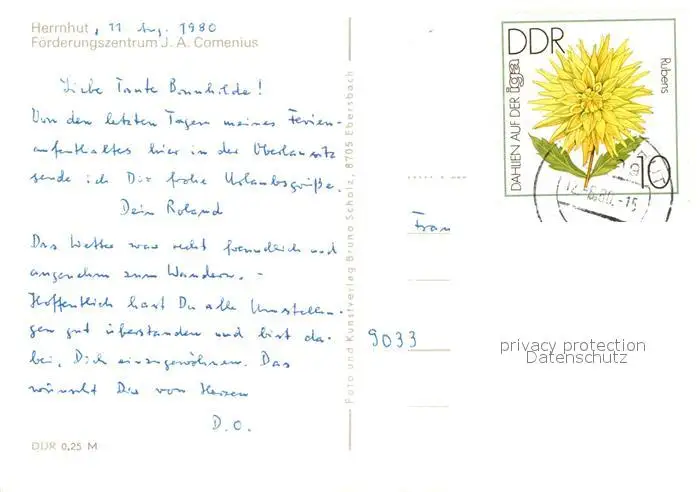 Herrnhut, 11 Aug. 1980
Förderungszentrum J. A. Comenius
Liebe Tante Brunhilde!
Von den letzten Tagen meines Ferien-
aufenthaltes hier in der Oberlausitz
sende ich Dir frohe Urlaubsgrüße.
Dein Roland
Das Wetter war recht freundlich und
angenehm zum Wandern. -
Hoffentlich hast Du alle Umstellun-
gen gut überstanden und bist da-
bei, Dich einzugewöhnen. Das
wünscht Dir von Herzen
D. O.
DDR 0,25 M
Foto und Kunstverlag Bruno Scholz, 8705 Ebersbach
DDR
DAHLIEN AUF DER iga
Rubens
10
12.-8.80.-15
Frau
9033
privacy protection
Datenschutz